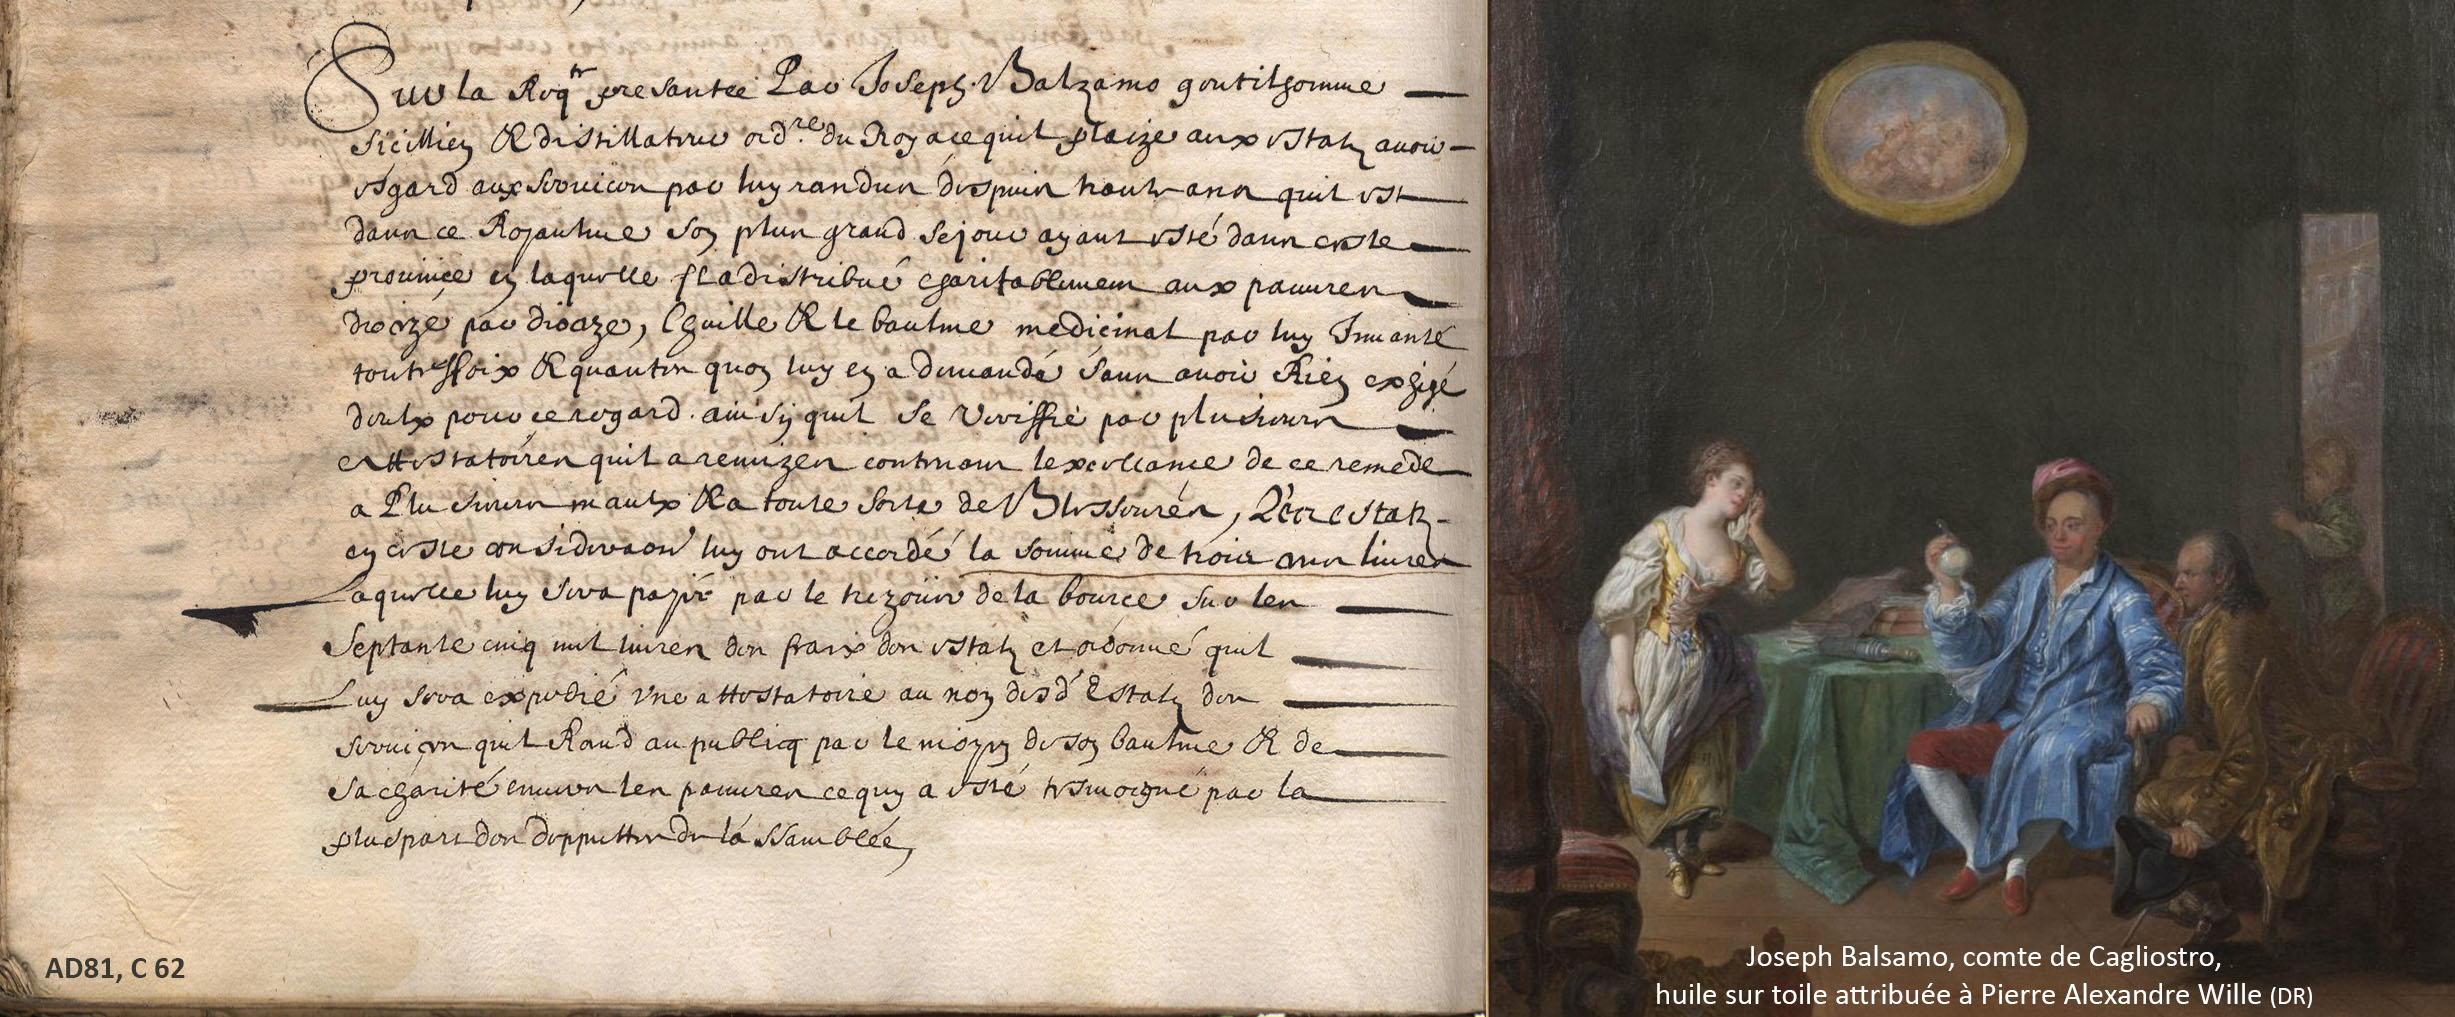 Sur la Req.te presantee Par Joseph Balzamo gentilhomme
Sicillien & distillateur ord.re du Roy a ce quil plaize aux Estatz avoir
esgard aux services par luy randus despuis trante ans quil est
dans ce Royaulme son plus grand sejour ayant esté dans ceste
province en laquelle il a distribué charitablemen aux pauvres
dioceze par dioceze, lhuille & le baulme medicinal par luy Invanté
toutesfoix & quantes quon luy en a demandé sans avoir Rien exhigé
deulx pour ce regard ainsy quil se veriffie par plusieurs
attestatoires quil a remizes contenant lexcellance de ce remede
a Plusieurs maulx & a toute sorte de Blessures, Lesd. Estatz
en ceste consideraon luy ont accordé la somme de trois cens livres
Laquelle luy sera payée par le trezorier de la bource sur les
Septante cinq mil livres des fraix des Estatz et ordonné quil
Luy sera expedié une attestatoire au nom desd. Estatz des
services quil Rand au publicq par le moyen de son baulme & de
sa charité envers les pauvres ce quy a esté tesmoigné par la
pluspart des depputtes de lassamblée,
AD81, C 62
Joseph Balsamo, comte de Cagliostro,
huile sur toile attribuée à Pierre Alexandre Wille (DR)